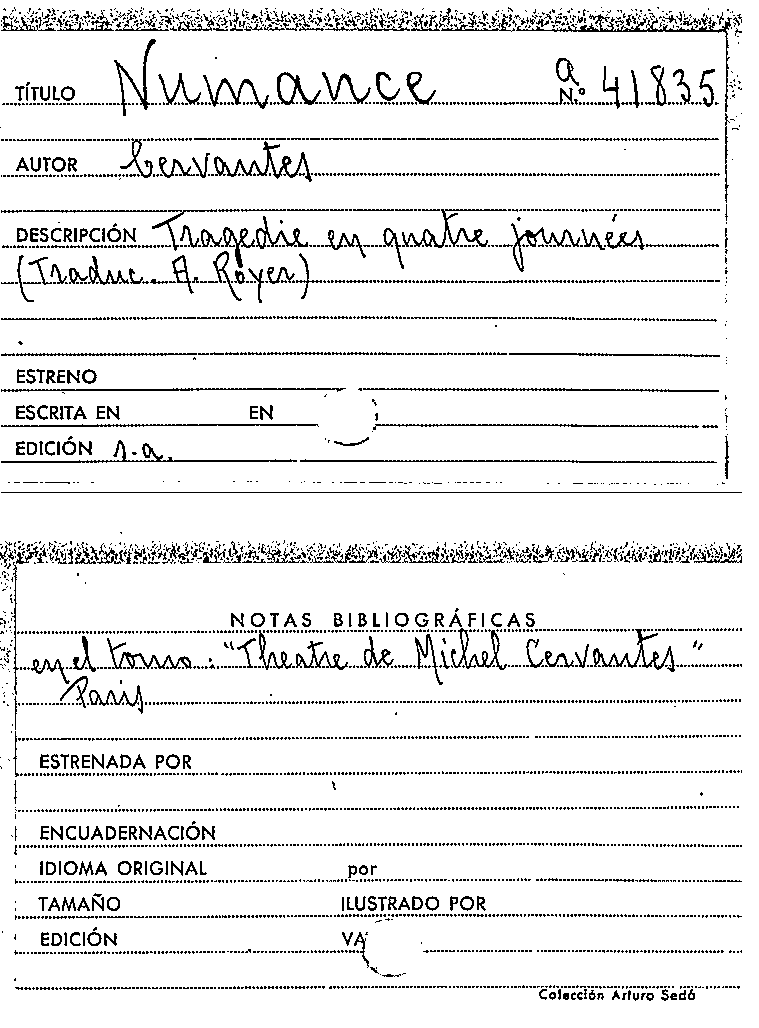 a
TÍTULO Numance N.º 41835
AUTOR Cervantes
DESCRIPCIÓN Tragedie en quatre journées
(Traduc. A. Royer)
ESTRENO
ESCRITA EN EN
EDICIÓN s.a.
NOTAS BIBLIOGRÁFICAS
en el tomo: "Theatre de Michel Cervantes"
Paris
ESTRENADA POR
ENCUADERNACIÓN
IDIOMA ORIGINAL por
TAMAÑO ILUSTRADO POR
EDICIÓN VA
Colección Arturo Sedó